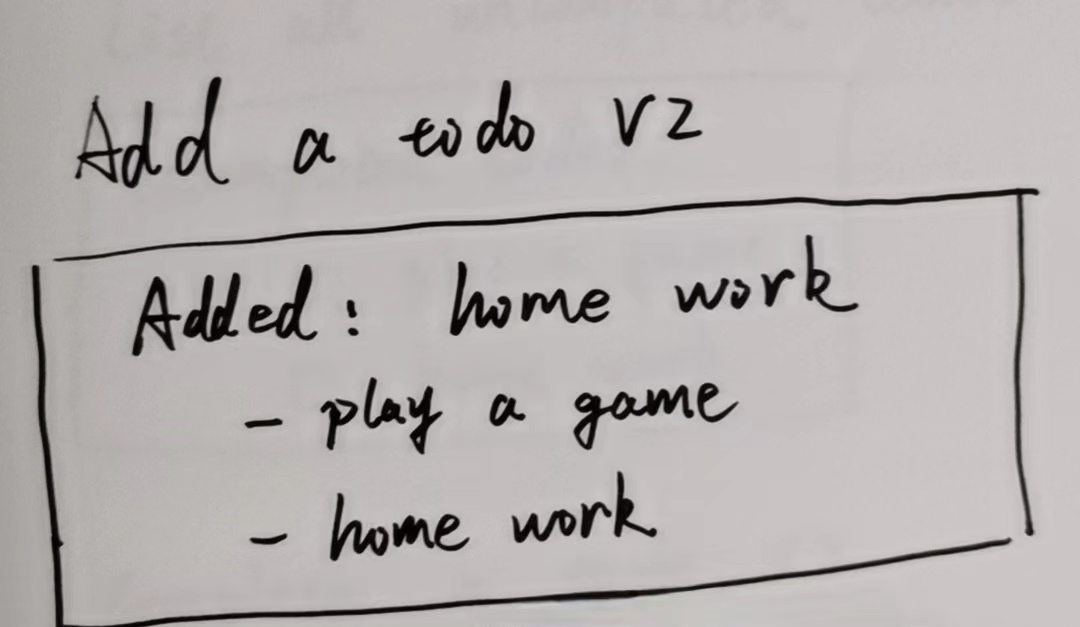 Add a todo v2
Added: home work
- play a game
- home work